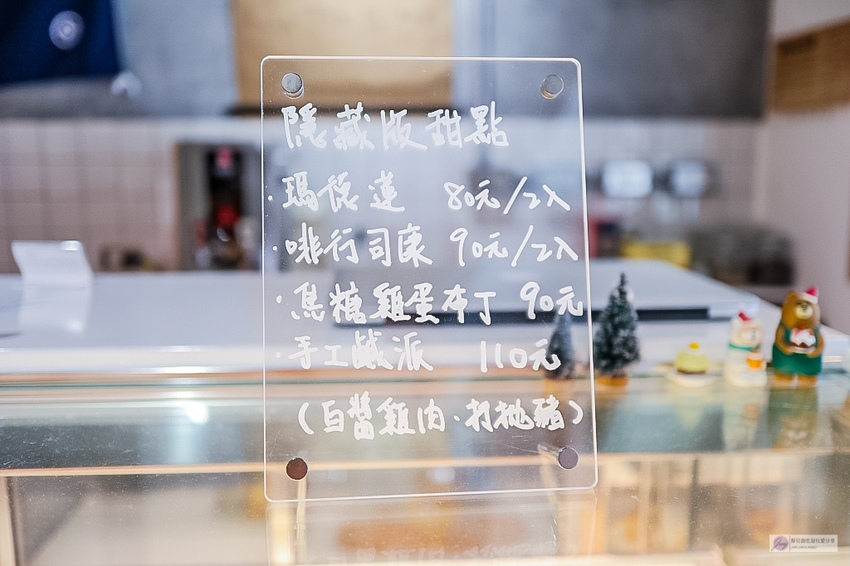 隱藏版甜點
·瑪德蓮 80元/2入
·啡行司康 90元/2入
·焦糖雞蛋布丁 90元
·手工鹹派 110元
(白醬雞肉·打拋豬)